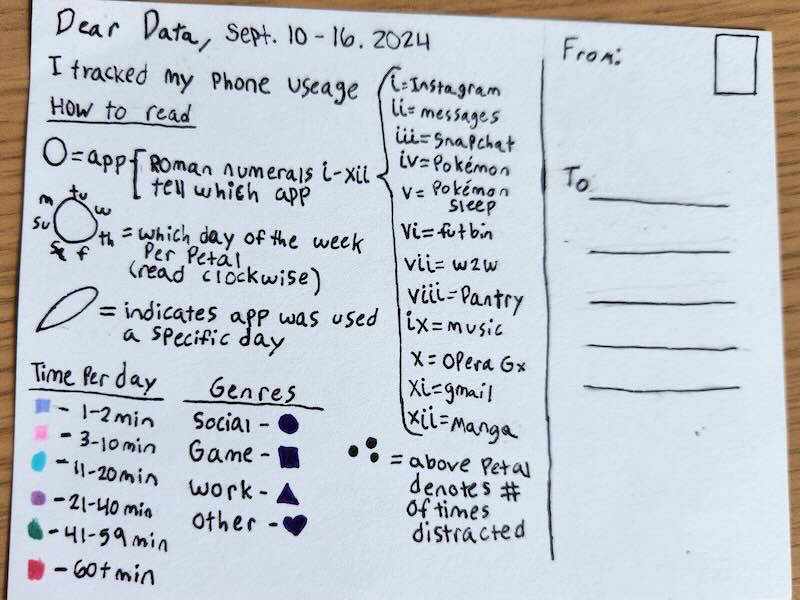 Dear Data, Sept. 10-16. 2024
I tracked my phone useage
How to read
O=app [Roman numerals i-xii
tell which app
i=Instagram
ii=messages
iii=snapchat
iv=Pokémon
v=Pokémon
sleep
vi=futbin
vii=w2w
viii=Pantry
ix=music
x=Opera Gx
xi=gmail
xii=Manga
m tu w th f su
=which day of the week
Per Petal
(read clockwise)
=indicates app was used
a specific day
Time Per day
-1-2min
-3-10min
-11-20min
-21-40min
-41-59min
-60+min
Genres
Social-
Game-
Work-
Other-
=above Petal
denotes #
of times
distracted
From:
To